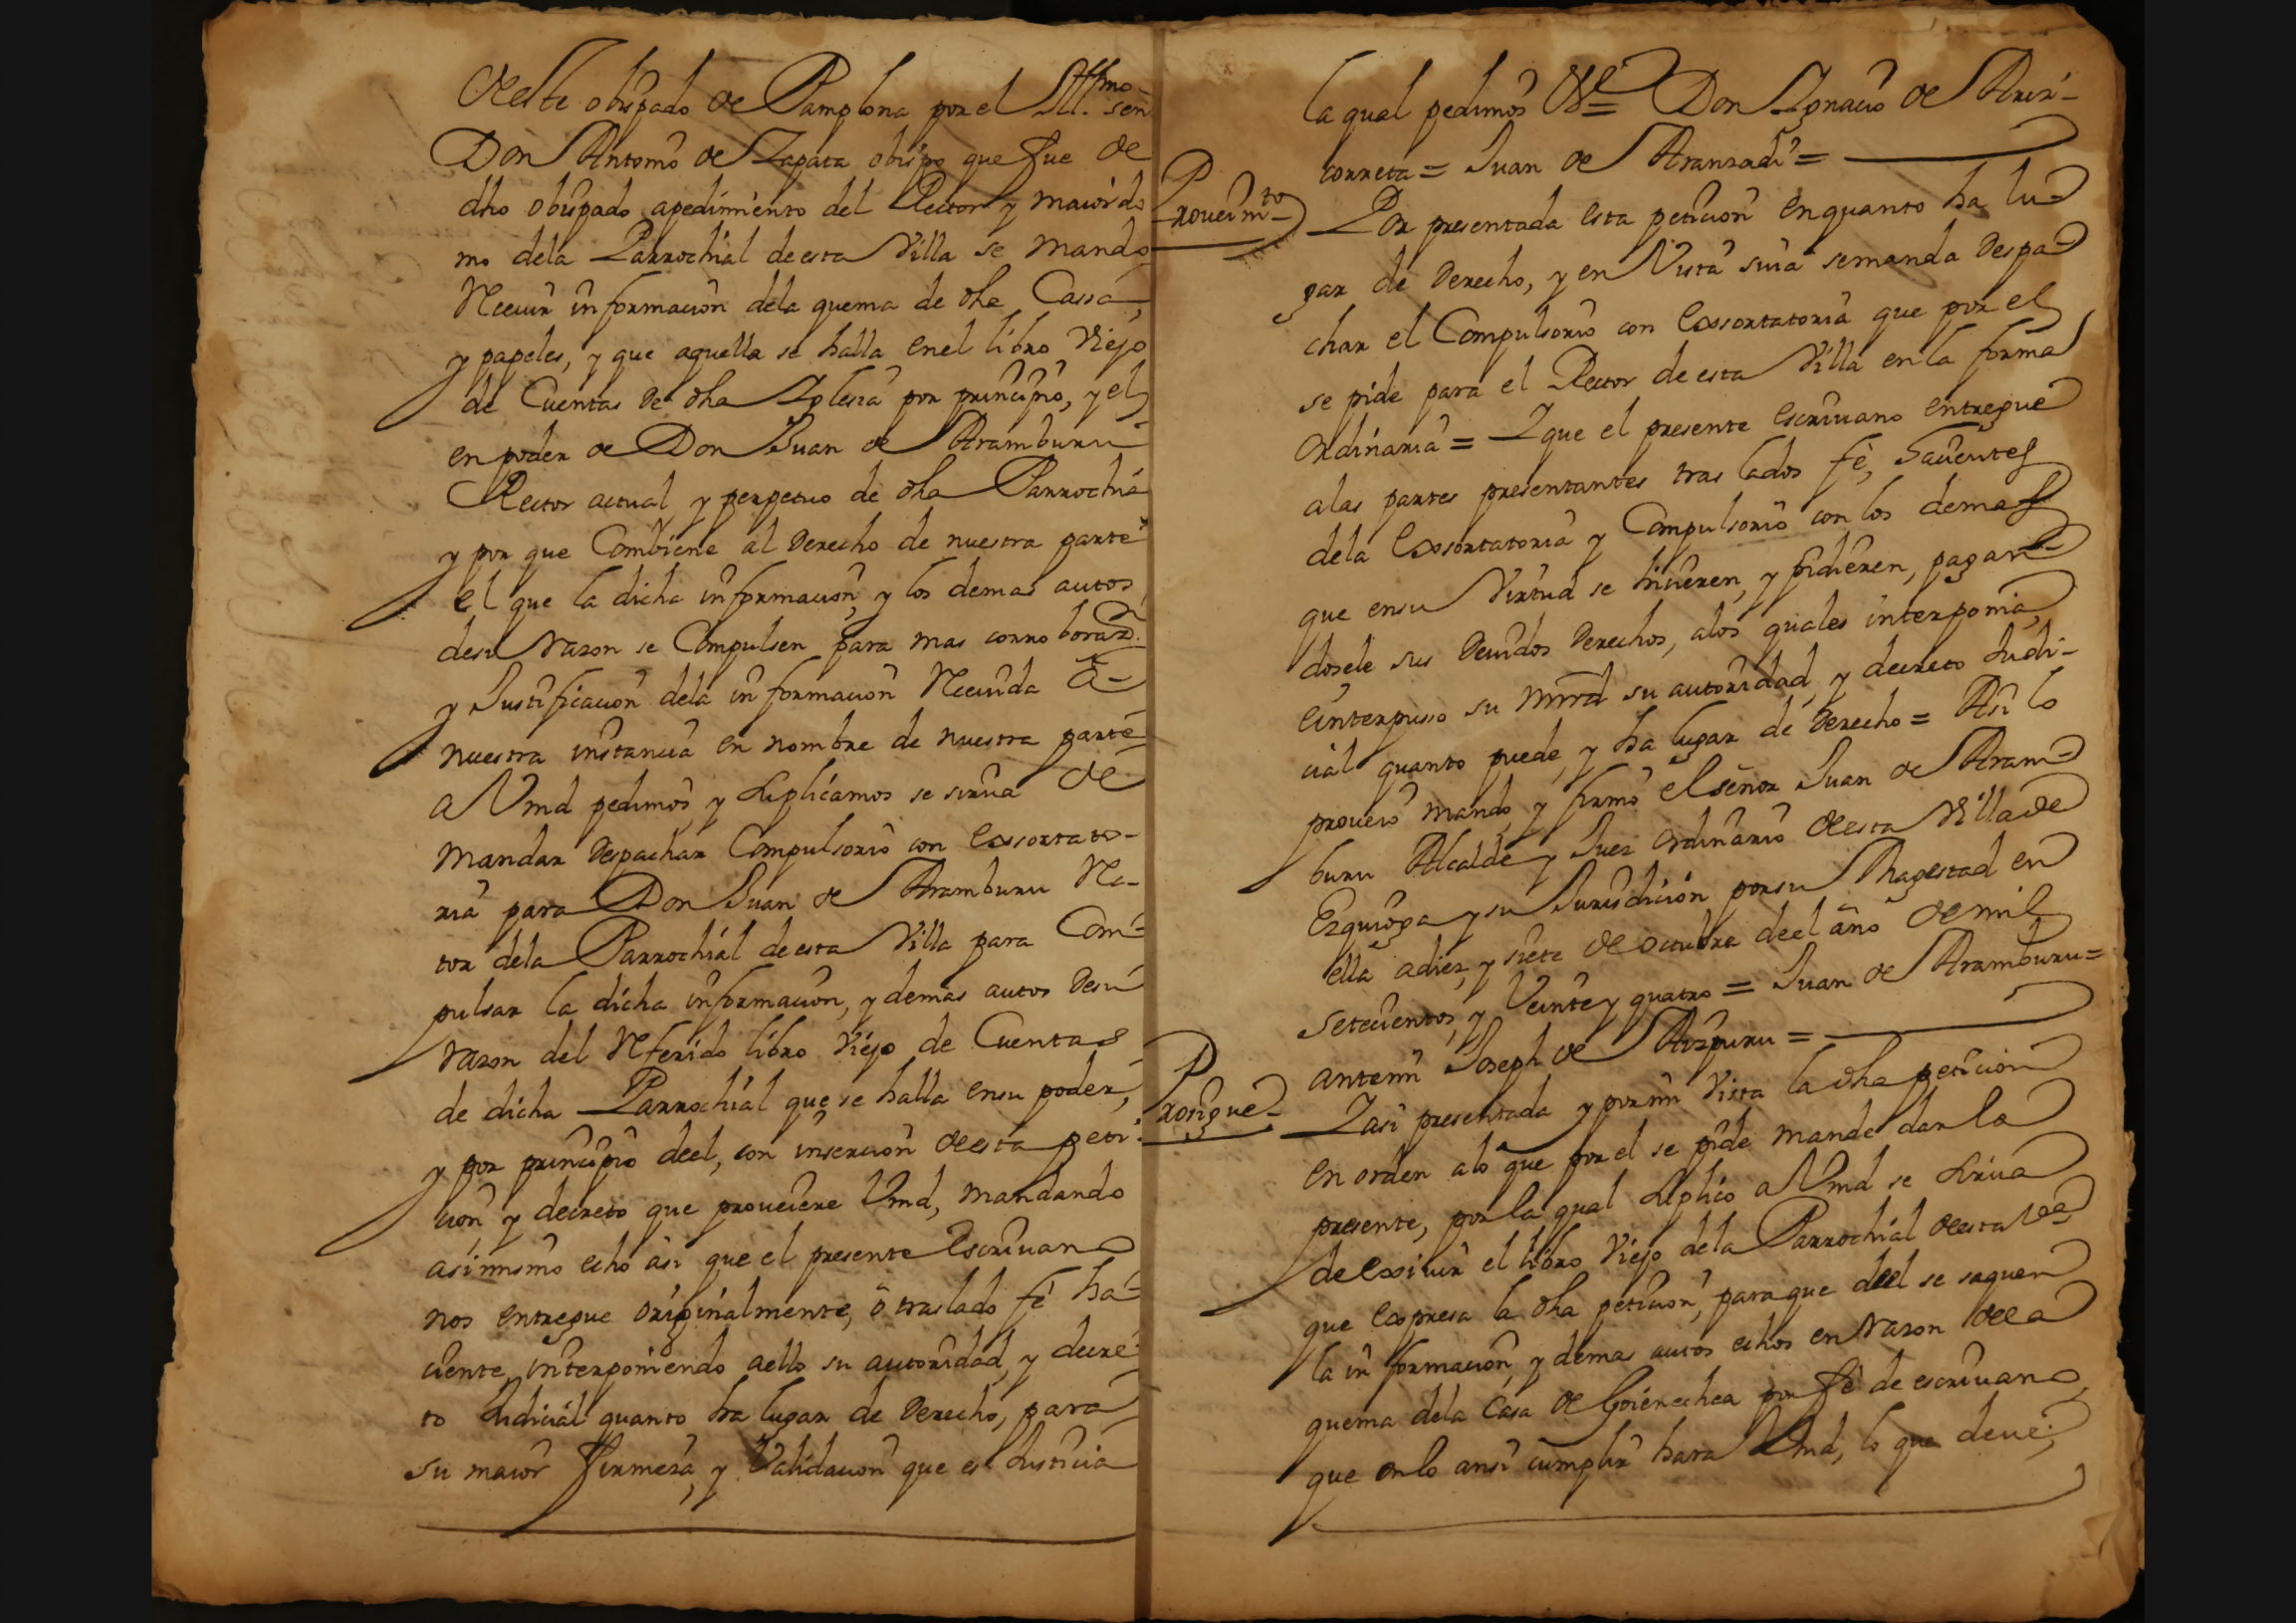 deste obispado de Pamplona por el Illmo. señ
Don Antonio de Zapata obispo que fue de
dho obispado apedimiento del Rector y maiordo
mo dela Parrochial deesta Villa se mando
Recivir informacion dela quema de dha Cassa,
y papeles, y que aquella se halla enel libro Viejo
de Cuentas de dha Iglesia por principio, y el
en poder de Don Juan de Aramburu
Rector actual y perpetuo de dha Parrochia
y por que Combiene al derecho de nuestra parte
el que la dicha informacion, y los demas autos
desu razon se Compulsen para mas corroboraz.
y Justificacion dela informacion Recivida a
nuestra instancia en nombre de nuestra parte
a Vmd pedimos, y suplicamos se sirva de
mandar despachar Compulsorio con Exsortato-
ria para Don Juan de Aramburu Re-
tor dela Parrochial deesta Villa para Com-
pulsar la dicha informacion, y demas autos desu
razon del Referido libro Viejo de Cuentas
de dicha Parrochial que se halla ensu poder,
y por principio deel, con insercion deesta peti-
cion, y decreto que proveiere Vmd, mandando
asimismo echo asi que el presente Escrivano
nos entregue originalmente, o traslado fe ha-
ciente, interponiendo aello su autoridad, y decre-
to Judicial quanto ha lugar de derecho, para
su maior firmeza, y Validacion que es Justicia
la qual pedimos &ª= Don Ignacio de Arri-
correta = Juan de Aranzadi =
Proveimto
Por presentada esta peticion enquanto ha lu-
gar de derecho, y en Vista suia semanda despa-
char el Compulsorio con Exsortatoria que por el
se pide para el Rector deesta Villa en la forma
Ordinaria = Y que el presente escrivano entregue
alas partes presentantes traslados fe, hacientes
dela Exsortatoria y Compulsorio con los demas
que ensu Virtud se hicieren, y pidieren, pagan-
dosele sus devidos derechos, alos quales interponia,
einterpuso su mrd su autoridad, y decreto Judi-
cial quanto puede, y ha lugar de derecho = Asi lo
proveio mando, y firmo el señor Juan de Aram-
buru Alcalde y Juez ordinario deesta Villa de
Ezquioga y su Jurisdicion porsu Magestad en
ella adiez, y siete de octubre deel año de mil
setecientos, y Veinte y quatro = Juan de Aramburu =
antemi Joseph de Aizpuru =
Prosigue
Y asi presentada y pormi Vista la dha peticion
en orden alo que por el se pide mande dar la
presente, por la qual suplico a Vmd se sirva
de exsivir el libro Viejo dela Parrochial deesta Va
que expresa la dha peticion, para que deel se saquen
la informacion, y demas autos echos en razon dela
quema dela Casa de Goienechea por fe de escrivano,
que enlo ansi cumplir hara Vmd, lo que deve;